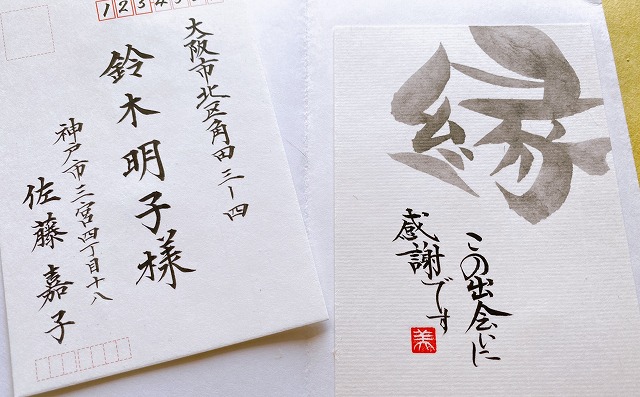 123456
大阪市北区角田三ー四
鈴木明子様
神戸市三宮四丁目十八
佐藤嘉子
縁
この出会いに
感謝です
美